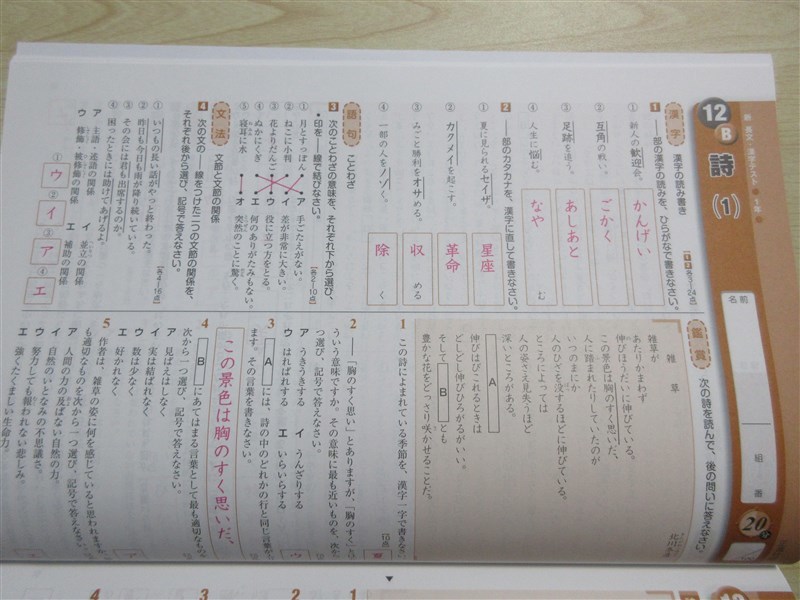 12
B
詩
(1)
名前
組
番
20
漢字
漢字の読み書き
1 ――部の漢字の読みを、ひらがなで書きなさい。
① 新人の歓迎会。
かんげい
② 互角の戦い。
ごかく
③ 足跡を追う。
あしあと
④ 人生に悩む。
なや
む
2 ――部のカタカナを、漢字に直して書きなさい。
① 夏に見られるセイザ。
星座
② カクメイを起こす。
革命
③ みごと勝利をオサめる。
収
める
④ 一部の人をノゾく。
除
く
語句
ことわざ
3 次のことわざの意味を、それぞれ下から選び、
・印を――線で結びなさい。
① 月とすっぽん
② ねこに小判
③ 花よりだんご
④ ぬかにくぎ
⑤ 寝耳に水
ア 手ごたえがない。
イ 差が非常に大きい。
ウ 役に立つ方をとる。
エ 何のありがたみもない。
オ 突然のことに驚く。
文法
文節と文節の関係
4 次の文の――線をつけた二つの文節の関係を、
それぞれ後から選び、記号で答えなさい。
① いつもの長い話がやっと終わった。
② 昨日も今日も雨が降り続いている。
③ その会には君も出席するのか。
④ 困ったときには助けてあげるよ。
ア 主語・述語の関係
イ 並立の関係
ウ 修飾・被修飾の関係
エ 補助の関係
① ウ
② イ
③ ア
④ エ
鑑賞
次の詩を読んで、後の問いに答えなさい。
雑草
雑草が
あたりかまわず
伸びほうだいに伸びている。
この景色は胸のすく思いだ、
人に踏まれたりしていたのが
いつのまにか
人のひざを没するほどに伸びている。
ところによっては
人の姿さえ見失うほど
深いところがある。
A
伸びはびこれるときは
どしどし伸びひろがるがいい。
そして B とも
豊かな花をどっさり咲かせることだ。
1 この詩によまれている季節を、漢字一字で書きなさい
10点
夏
2 ――「胸のすく思い」とありますが、「胸のすく」
ういう意味ですか。その意味に最も近いものを、次から
つ選び、記号で答えなさい。
ア うきうきする
イ うんざりする
ウ はればれする
エ いらいらする
ウ
3 A には、詩の中のどれかの行と同じ言葉が
ます。その言葉を書きなさい。
この景色は胸のすく思いだ、
4 B にあてはまる言葉として最も適切なものを
次から一つ選び、記号で答えなさい。
ア 見ばえはしなく
イ 実は結ばれなく
ウ 数は少なく
エ 好かれなく
ア
5 作者は、雑草の姿に何を感じていると思われます
も適切なものを次から一つ選び、記号で答えなさい
ア 人間の力の及ばない自然の力。
イ 自然のいとなみの不思議さ。
ウ 努力しても報われない悲しみ。
エ 強くたくましい生命力。
1
2
3
4